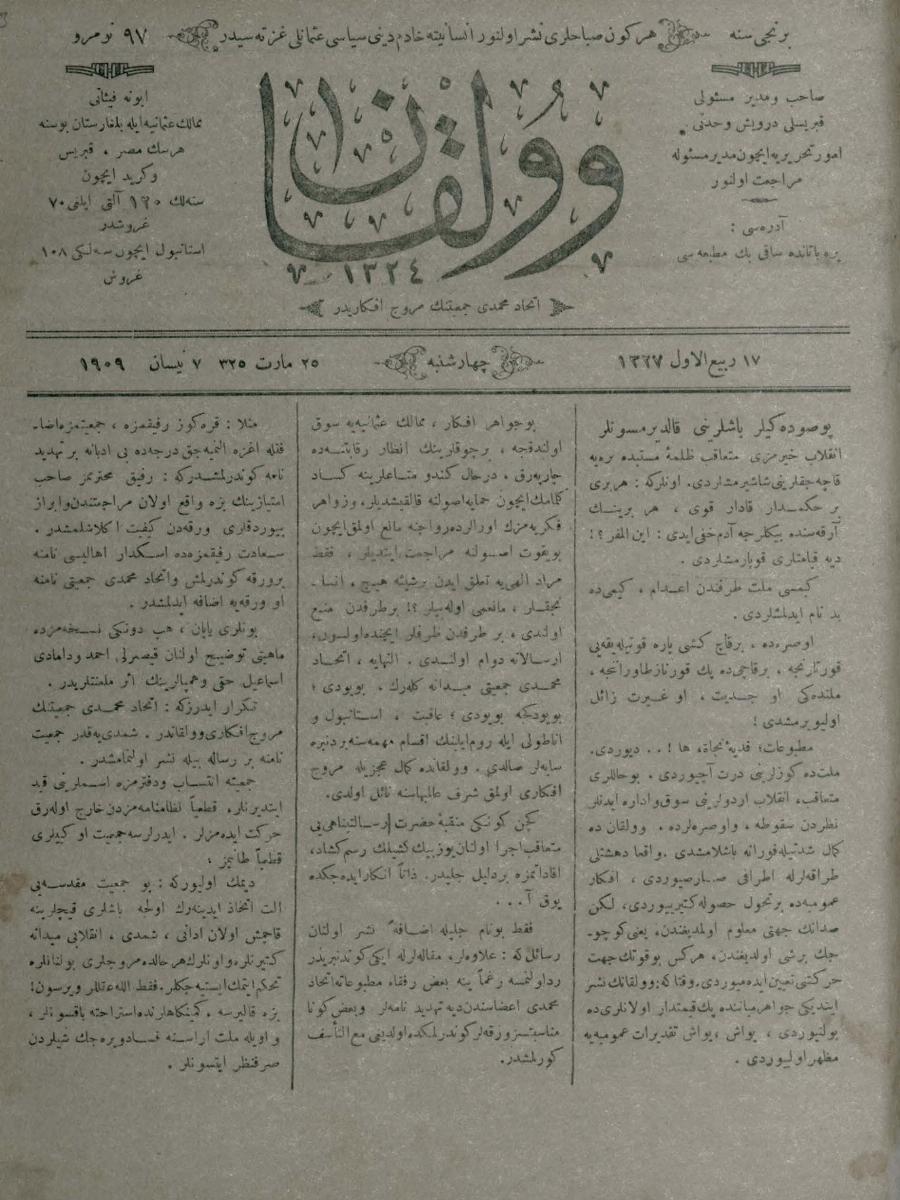 برنجی سنه
هر كون صباحلری نشر اولنور انسانیته خادم دینی سیاسی عثمانلی غزته سیدر
۹۷ نومرو
صاحب ومدیر مسئولی
قبریسلی درویش وحدتی
امور تحریریه ایچون مدیر مسئوله
مراجعت اولنور
آدره سی :
وولقان
۱۳۲٤
اتحاد محمدی جمعیتنك مروج افكاریدر
ابونه فیئاتی
ممالك عثمانیه ایله بلغارستان بوسنه
هرسك مصر ، قبریس
وكرید ایچون
سنه لك ۱۳۰ آلتی ایلغی ۷۰
غروشدر
استانبول ایچون سنه لكی ۱۰۸
غروش
۱۷ ربیع الاول ۱۳۲۷
چهارشنبه
۲۵ مارت ۳۲۵ ۷ نیسان ۱۹۰۹
پوصوده كیلر باشلرینی قالدیرمسونلر
انقلاب خیرمزی متعاقب ظلمهٔ مستبده بره یه
قاچه جقلرینی شاشیرمشلردی. اونلركه : هربری
بر حكمدار قادار قوی ، هر برینك
آرقه سنده بیكلرجه آدم خفی ایدی : این المفر؟!
دیه قیامتلری قوپارمشلردی .
كیمسی ملت طرفندن اعدام ، كیمی ده
بد نام ایدلمشلردی .
اوصره ده ، برقاچ كشی پاره قوتیله یقه یی
قورتارنجه . برقاچی ده پك قورناز طاورانجه ،
ملتده كی او جدیت ، او غیرت زائل
اولیویرمشدی !
مطبوعات؛ فدیهٔ نجاة، ها ! . . دیوردی.
ملت ده كوزلرینی درت آچیوردی . بوحاللری
متعاقب، انقلاب اردولرینی سوق واداره ایدنلر
نظردن سقوطه ، واوصره لرده . وولقان ده
كمال شدتیله فورانه باشلامشدی . واقعا دهشتلی
طراقه لرله اطرافی صارصیوردی ، افكار
عمومیه ده برتحول حصوله كتیرییوردی، لكن
صدانك جهتی معلوم اولمدیغندن، یعنی كوچو-
جك برشی اولدیغندن، هركس بوقوتك جهت
حركتنی تعیین ایده میوردی. وقتا كه وولقانك نشر
ایتدیكی جواهر میاننده پك قیمتدار اولانلری ده
بولنیوردی ، یواش ، یواش تقدیرات عمومیه یه
مظهر اولیوردی .
بوجواهر افكار ، ممالك عثمانیه یه سوق
اولندقجه ، برچوقلرینك انظار رقابتنه ده
چارپه رق ، درحال كندو متاعلرینه كساد
كلمامك ایچون حمایه اصولنه قالقیشدیلر. وزواهر
فكریه مزك اورالرده رواجنه مانع اولمق ایچون
بویقوت اصولنه مراجعت ایتدیلر ، فقط
مراد الهی یه تعلق ایدن برشیئه هیچ ، انسا-
نجقلر ، مانعمی اوله بیلر ؟! برطرفدن منع
اولندی ، بر طرفدن ظرفلر ایچنده اولسون،
ارسالاته دوام اولندی . النهایه ، اتحاد
محمدی جمعیتی میدانه كله رك . بویودی ؛
بویودكجه بویودی ؛ عاقبت ، استانبول و
اناطولی ایله روم ایلینك اقسام مهمه سنه بردنبره
سایه لر صالدی . وولقانده كمال عجزیله مروج
افكاری اولمق شرف عالیهاسنه نائل اولدی.
كچن كونكی منقبهٔ حضرت رسالتپناهی یی
متعاقب اجرا اولنان یوز بیك كشیلك رسم كشاد،
افاداتمزه بردلیل جلیدر. ذاتاً انكار ایده جكده
یوق آ . . .
فقط بونام جلیله اضافةً نشر اولنان
رسائل كه : علاوه لر ، مقاله لرله ایكی كوندنبریدر
رد اولنمسه رغماً ینه بعض رفقاء مطبوعاته اتحاد
محمدی اعضاسندن دیه تهدید نامه لر وبعض كونا
مناسبتسز ورقه لر كوندرلمكده اولدیغی مع التأسف
كورلمشدر.
مثلا : قره كوز رفیقمزه ، جمعیتمزه اضا-
فتله اغزه النمیه جق درجه ده بی ادبانه بر تهدید
نامه كوندرلمشدر كه : رفیق محترمز صاحب
امتیازینك بزه واقع اولان مراجعتندن و ابراز
بیوردقلری ورقه دن كیفیت اكلاشلمشدر .
سعادت رفیقمزه ده اسكدار اهالیسی نامنه
برورقه كوندرلمش واتحاد محمدی جمعیتی نامنه
او ورقه یه اضافه ایدلمشدر .
بونلری یاپان ، هپ دونكی نسخه مزده
ماهیتی توضیح اولنان قیصرلی احمد ودامادی
اسماعیل حقی وهمپالرینك اثر ملعنتلریدر .
تكرار ایدرز كه : اتحاد محمدی جمعیتنك
مروج افكاری وولقاندر . شمدی یه قدر جمعیت
نامنه بر رساله بیله نشر اولنمامشدر .
جمعیته انتساب ودفترمزه اسملرینی قید
ایتدیرنلر، قطعیاً نظامنامه مزدن خارج اوله رق
حركت ایده مزلر . ایدرلرسه جمعیت او كبیلری
قطعیاً طانیمز ؛
دیمك اولیور كه : بو جمعیت مقدسه یی
الت اتخاذ ایدینه رك اولجه باشلری قیچلرینه
قاچمش اولان ادانی ، شمدی ، انقلابی میدانه
كتیرنلره واونلرك هر حالده مروجلری بولنانلره
تحكم ایتمك ایسته یه جكلر. فقط الله عقللر ویرسون!
بزه قالیرسه ، كمینكاهلرنده استراحته باقسونلر ،
و اویله ملت اراسنه فساد ویره جك شیلردن
صرفنظر ایتسونلر .